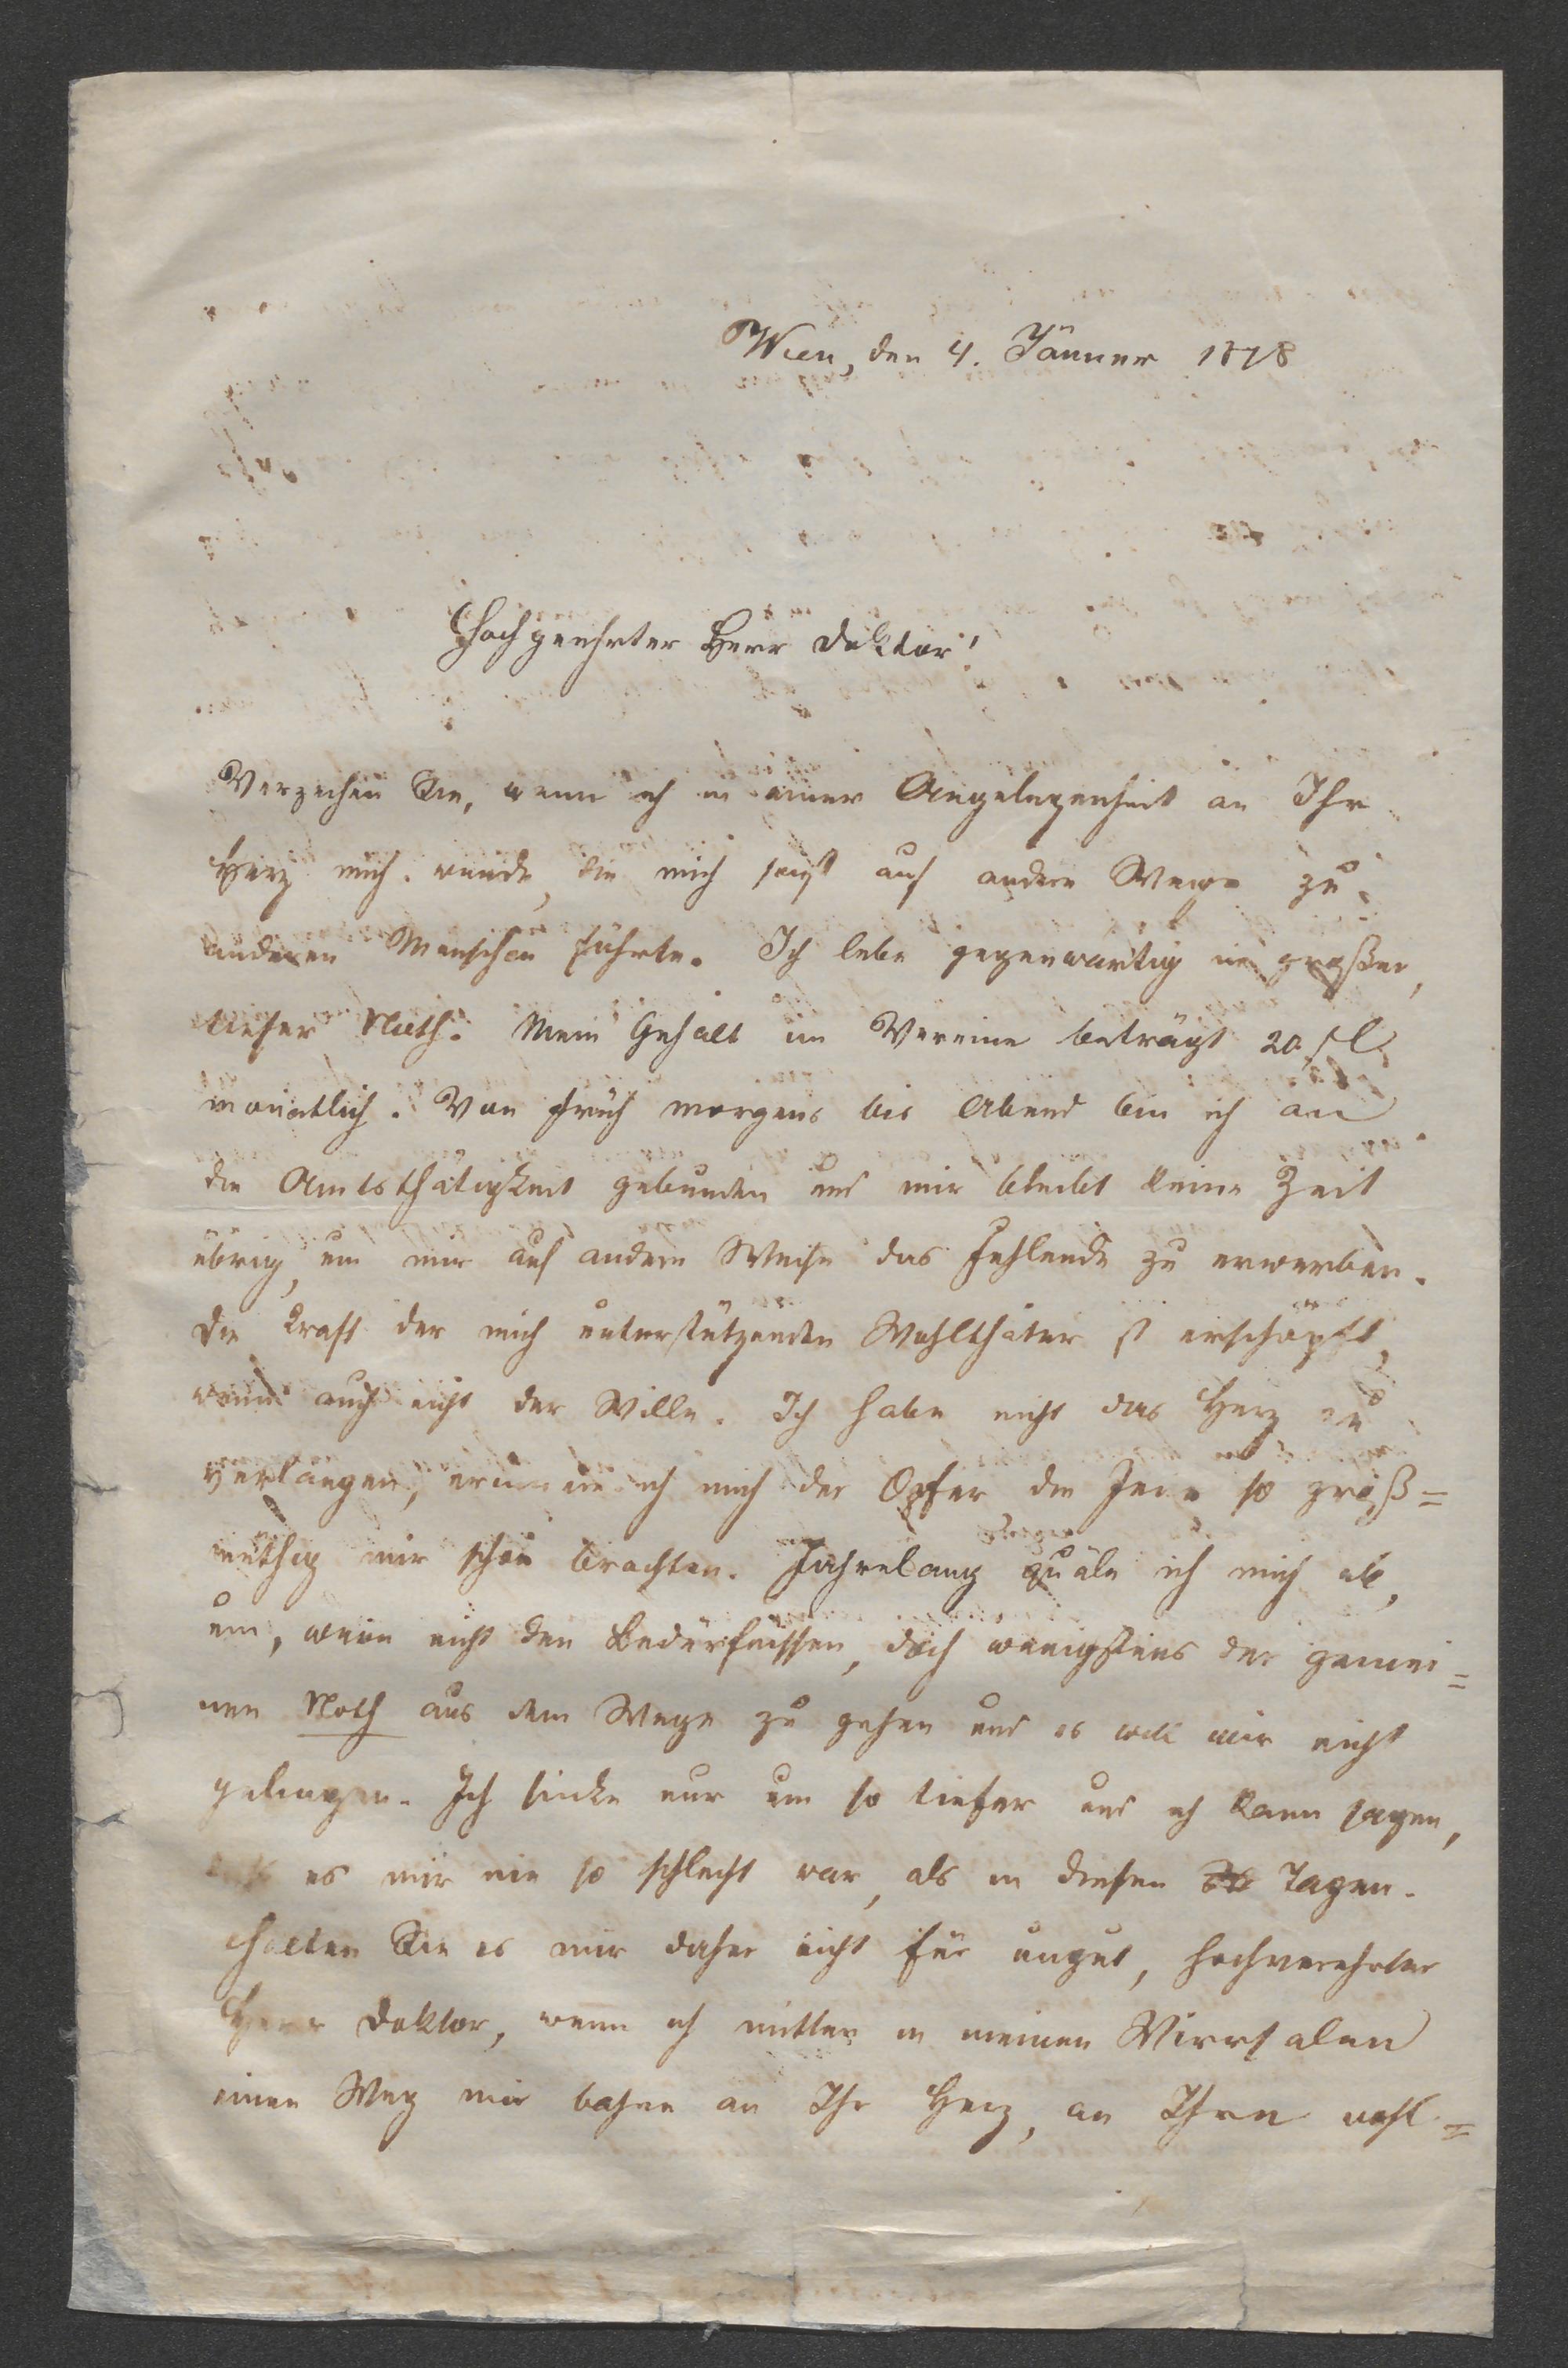 Wien, den 4. Jänner 1878
Hochgeehrter Herr Doktor!
Verzeihen Sie, wenn ich in einer Angelegenheit an Ihr
Herz mich wende, die mich sonst auf andere Wege zu
anderen Menschen führte. Ich lebe gegenwärtig in großer,
tiefer Noth. Mein Gehalt im Vereine beträgt 20 fl
monatlich. Von früh morgens bis Abend bin ich an
die Amtsthätigkeit gebunden und mir bleibt keine Zeit
übrig, um mir auf andere Weise das Fehlende zu erwerben.
Die Kraft der mich unterstützenden Wohlthäter ist erschöpft,
wenn auch nicht der Wille. Ich habe nicht das Herz zu
verlangen, erinnere ich mich der Opfer die Jene so groß=
müthig mir schon brachten. Jahrelang quäle ich mich ab,
um, wenn nicht den Bedürfnissen, doch wenigstens der gemei=
nen Noth aus dem Wege zu gehen und es will mir nicht
gelingen. Ich sinke nur um so tiefer und ich kann sagen,
daß es mir nie so schlecht war, als in diesen Tagen.
Halten Sie es mir daher nicht für ungut, hochverehrter
Herr Doktor, wenn ich mitten in meinen Wirrsalen
einen Weg mir bahne an Ihr Herz, an Ihren wohl=